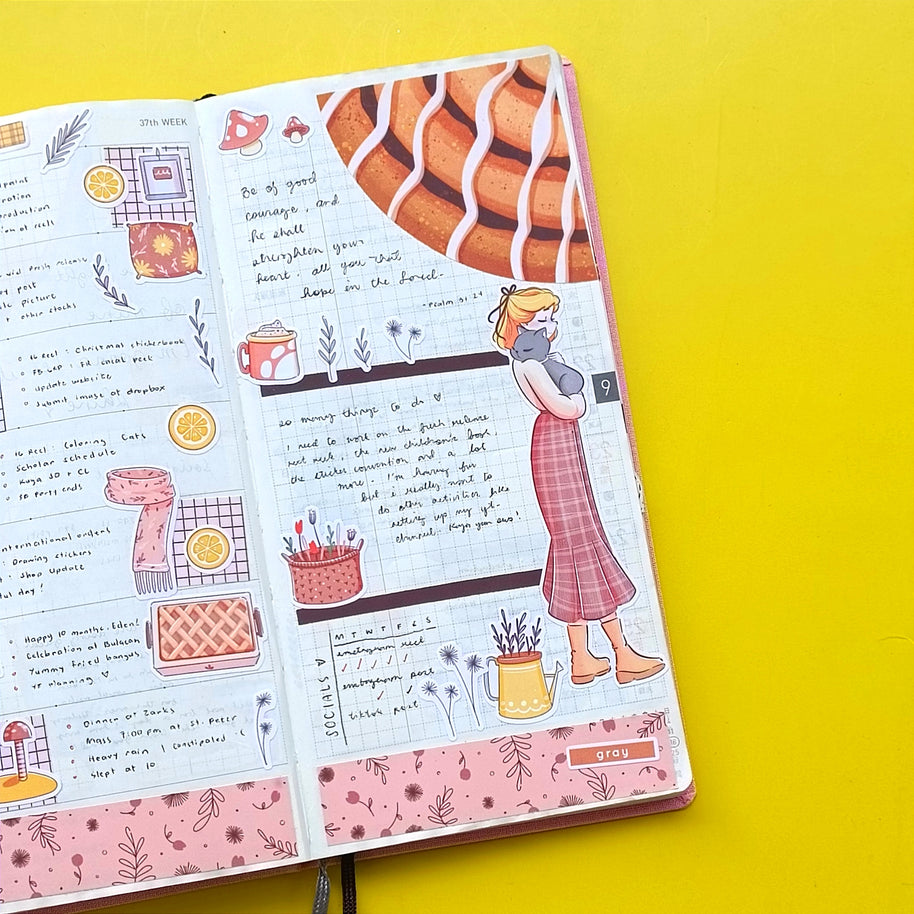 37th WEEK
production
fresh release
post
picture
other stocks
16 Reel : Christmas stickerbook
FB UKP : FB sneak peek
Update website
Submit image at dropbox
16 Reel : Coloring Cats
Scholar schedule
Kuya JD + CL
SB Party ends
International orders
Drawing stickers
Shop update
day!
Happy 10 months, Eden!
Celebration at Bulacan
Yummy fried bangus
YT planning ♡
Dinner at Zark's
Mass 7:00 pm at St. Peter
Heavy rain | Constipated :(
Slept at 10
Be of good
courage, and
he shall
strenghten your
heart. all you that
hope in the Lord.
- Psalm 31:24
so many things to do ♡
I need to work on the fresh release
next week, the new children's book,
the sticker convention and a lot
more. I'm having fun
but i really want to
do other activities like
setting up my yt
channel. Kaya yan guys!
9
M T W T F S S
instagram reel
instagram post
tiktok post
SOCIALS
gray